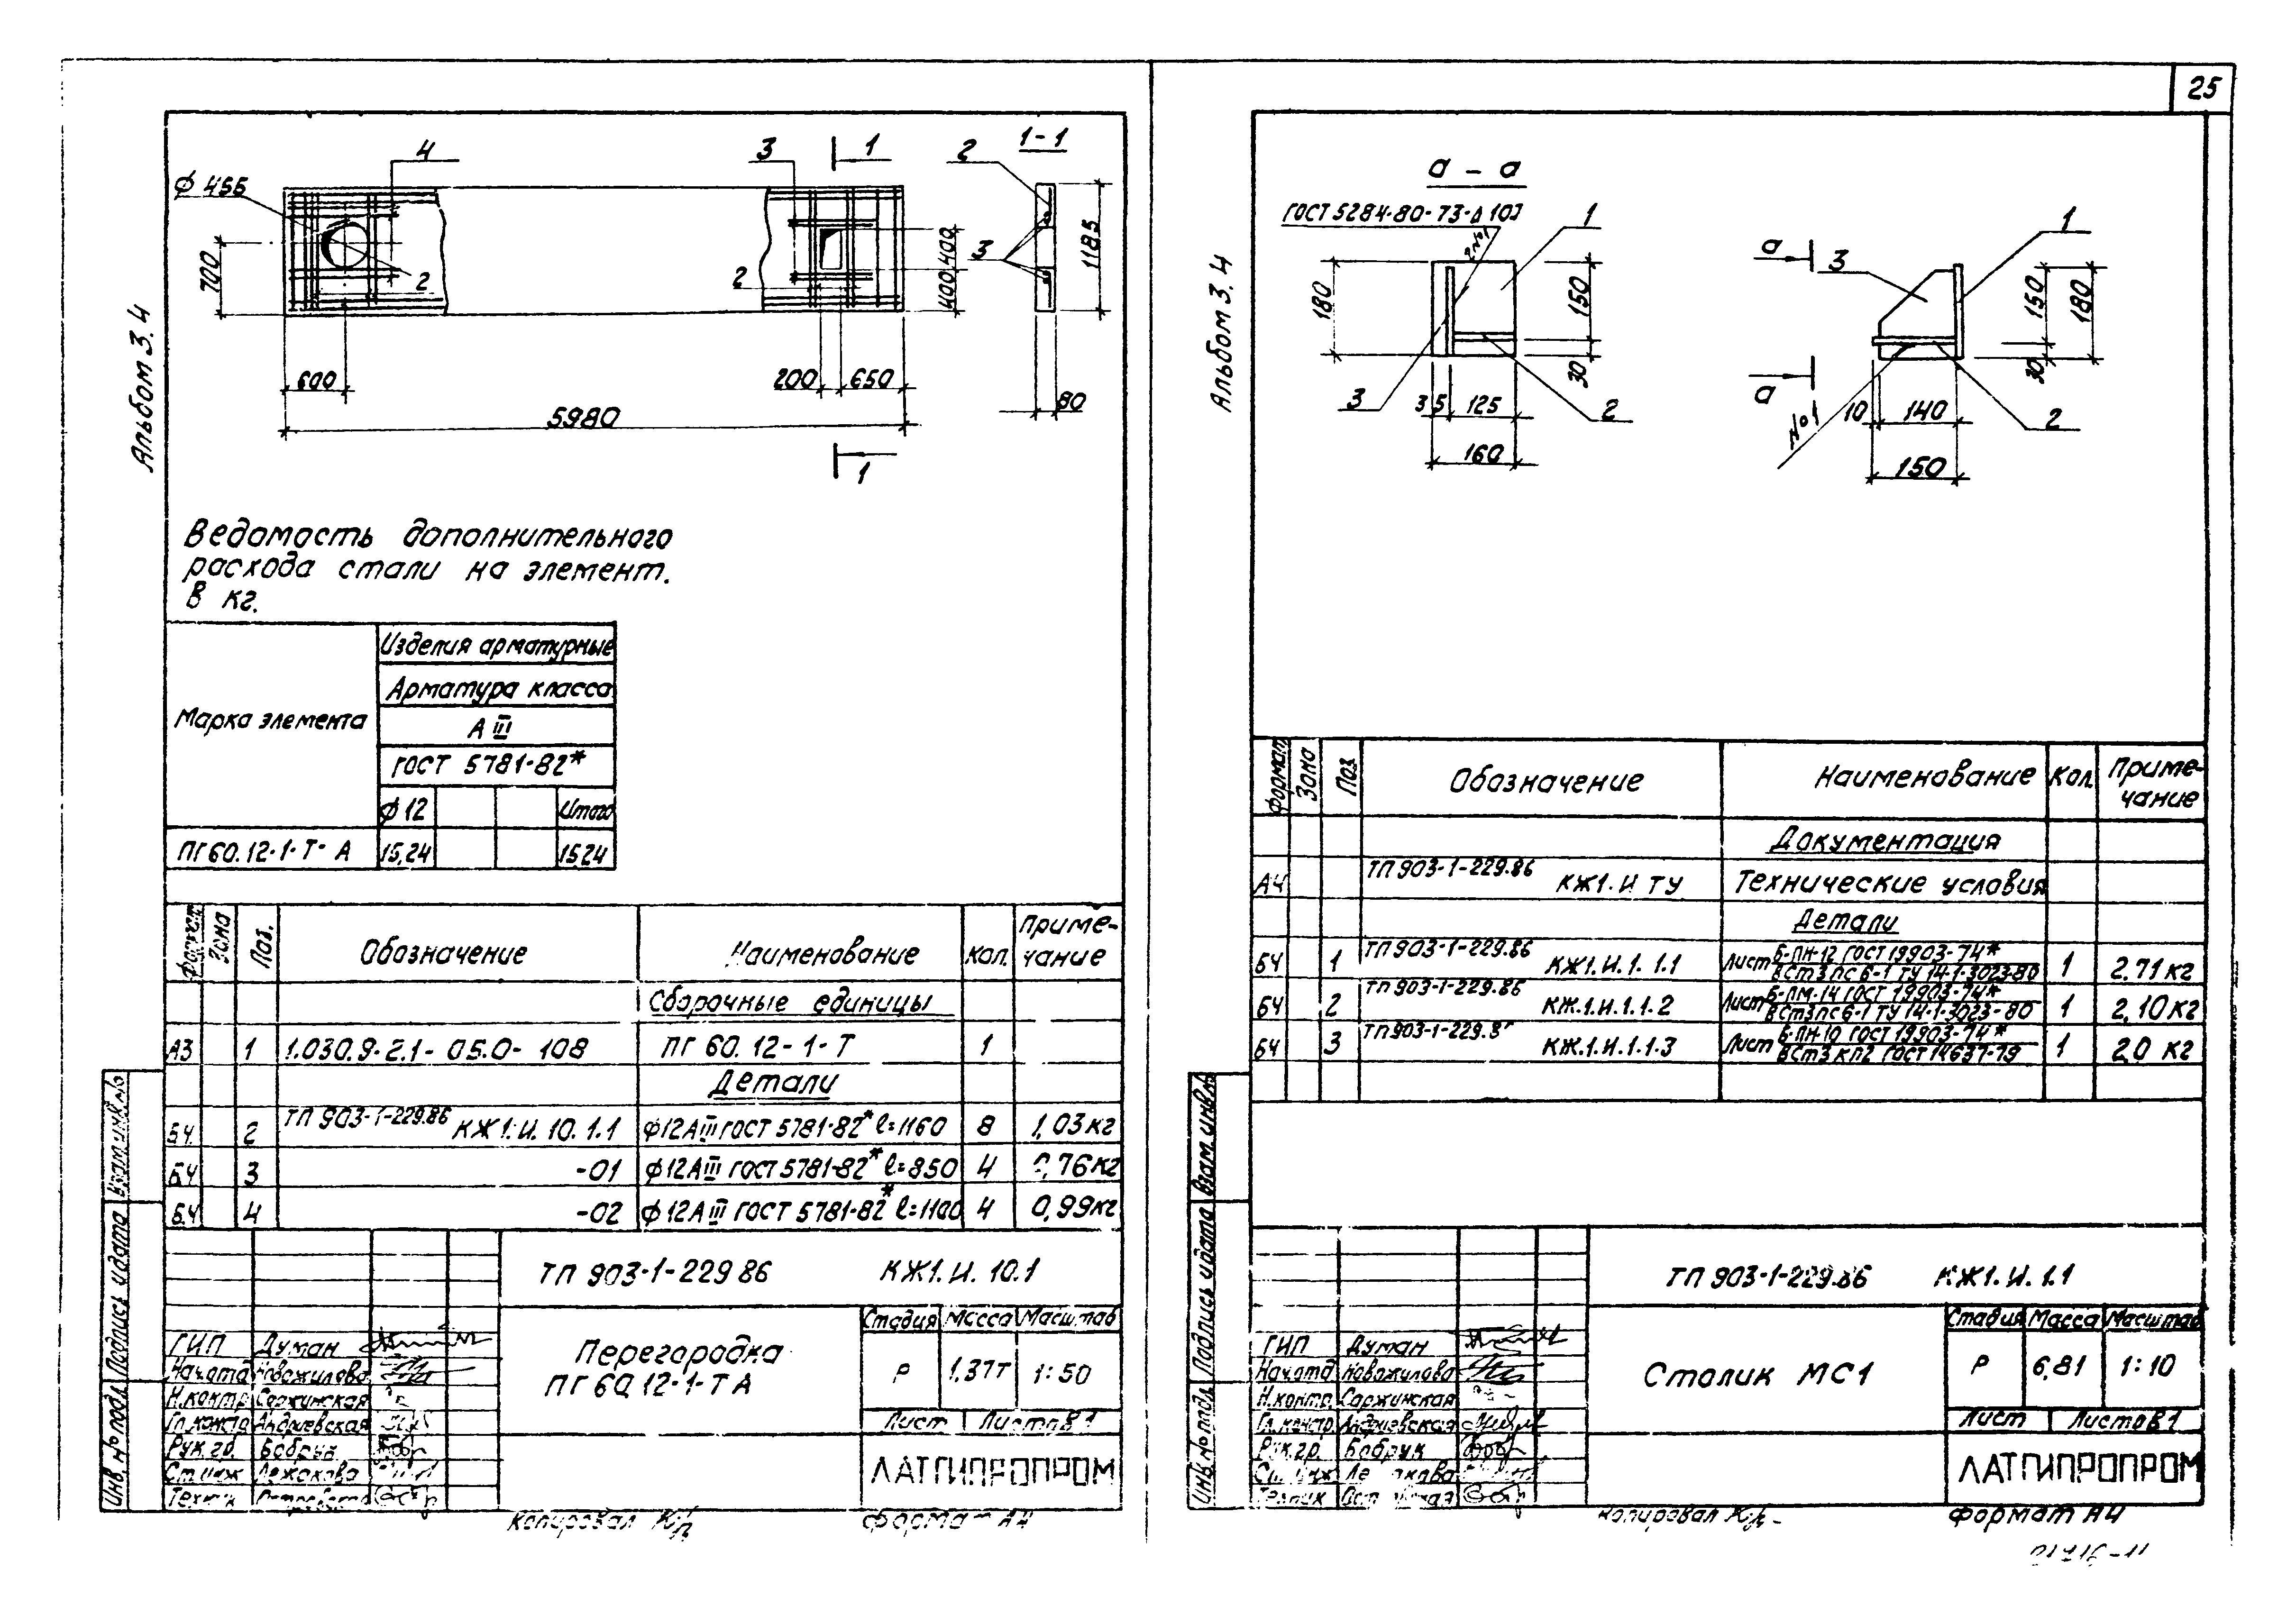 25
Альбом 3.4
4
3
1
2
1-1
ф 455
700
2
2
3
400
400
1185
600
200
650
80
5980
1
Ведомость дополнительного
расхода стали на элемент.
В кг.
Марка элемента
Изделия арматурные
Арматура класса
А III
ГОСТ 5781-82*
ф 12
Итого
ПГ60.12-1-Т-А
15,24
15,24
Формат
Зона
Поз.
Обозначение
Наименование
Кол.
Приме-
чание
Сборочные единицы
А3 1 1.030.9-2.1-05.0-108 ПГ 60.12-1-Т 1
Детали
БЧ 2 ТП 903-1-229.86 КЖ1.И.10.1.1 ф12АIII ГОСТ 5781-82* ℓ=1160 8 1,03кг
БЧ 3 -01 ф12АIII ГОСТ 5781-82* ℓ=850 4 0,76кг
БЧ 4 -02 ф12АIII ГОСТ 5781-82* ℓ=1100 4 0,99кг
ТП 903-1-229 86 КЖ1.И.10.1
Перегородка
ПГ 60.12-1-Т А
Стадия Масса Масштаб
Р 1,37т 1:50
Лист Листов 1
ЛАТГИПРОПРОМ
ГИП Думан
Нач.отд Новожилова
Н.контр. Саржинская
Гл.констр. Андриевская
Рук.гр. Бобрук
Ст.инж Лежакова
Техник
Взам.инв.№
Подпись и дата
Инв.№ подл.
Копировал
Формат А4
Альбом 3.4
а - а
ГОСТ 5284-80-73-Δ 10
2 №1
1
180
150
30
3
35
125
2
160
а
3
1
150
180
30
а
№1
10
140
2
150
Формат
Зона
Поз
Обозначение
Наименование
Кол.
Приме-
чание
Документация
А4 ТП 903-1-229.86 КЖ1.И ТУ Технические условия
Детали
БЧ 1 ТП 903-1-229.86 КЖ1.И.1.1.1 Лист Б-ПН-12 ГОСТ 19903-74* 1 2,71 кг
ВСт3пс6-1 ТУ 14-1-3023-80
БЧ 2 ТП 903-1-229.86 КЖ.1.И.1.1.2 Лист Б-ПМ-14 ГОСТ 19903-74* 1 2,10 кг
ВСт3пс6-1 ТУ 14-1-3023-80
БЧ 3 ТП 903-1-229.8 КЖ.1.И.1.1.3 Лист Б-ПН-10 ГОСТ 19903-74* 1 2,0 кг
ВСт3кп2 ГОСТ 14637-79
ТП 903-1-229.86 КЖ1.И.1.1
Столик МС1
Стадия Масса Масштаб
Р 6,81 1:10
Лист Листов 1
ЛАТГИПРОПРОМ
ГИП Думан
Нач.отд Новожилова
Н.контр. Саржинская
Гл.констр. Андриевская
Рук.гр. Бобрук
Ст.инж
Техник
Взам.инв.№
Подпись и дата
Инв.№ подл.
Копировал
Формат А4